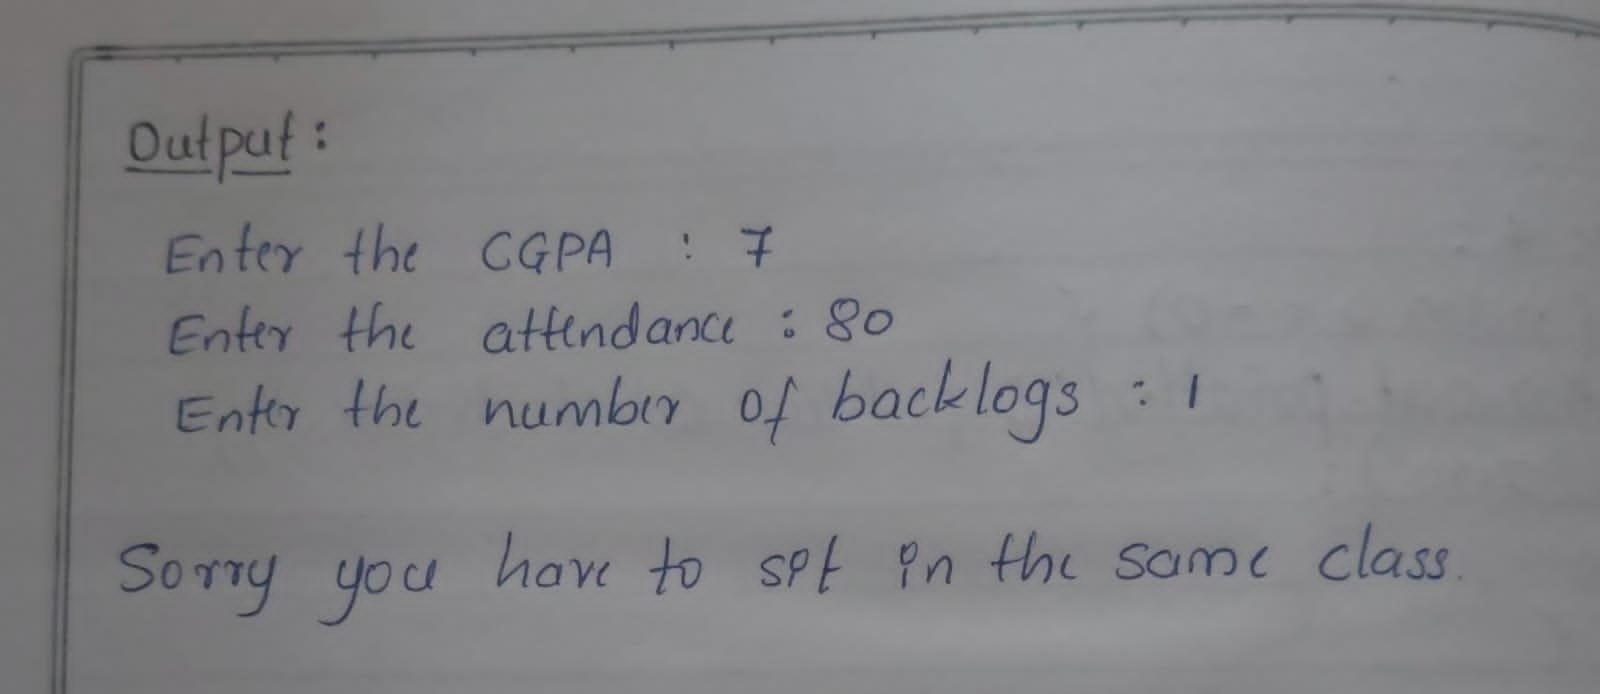 Output :
Enter the CGPA : 7
Enter the attendance : 80
Enter the number of backlogs : 1
Sorry you have to sit in the same class.